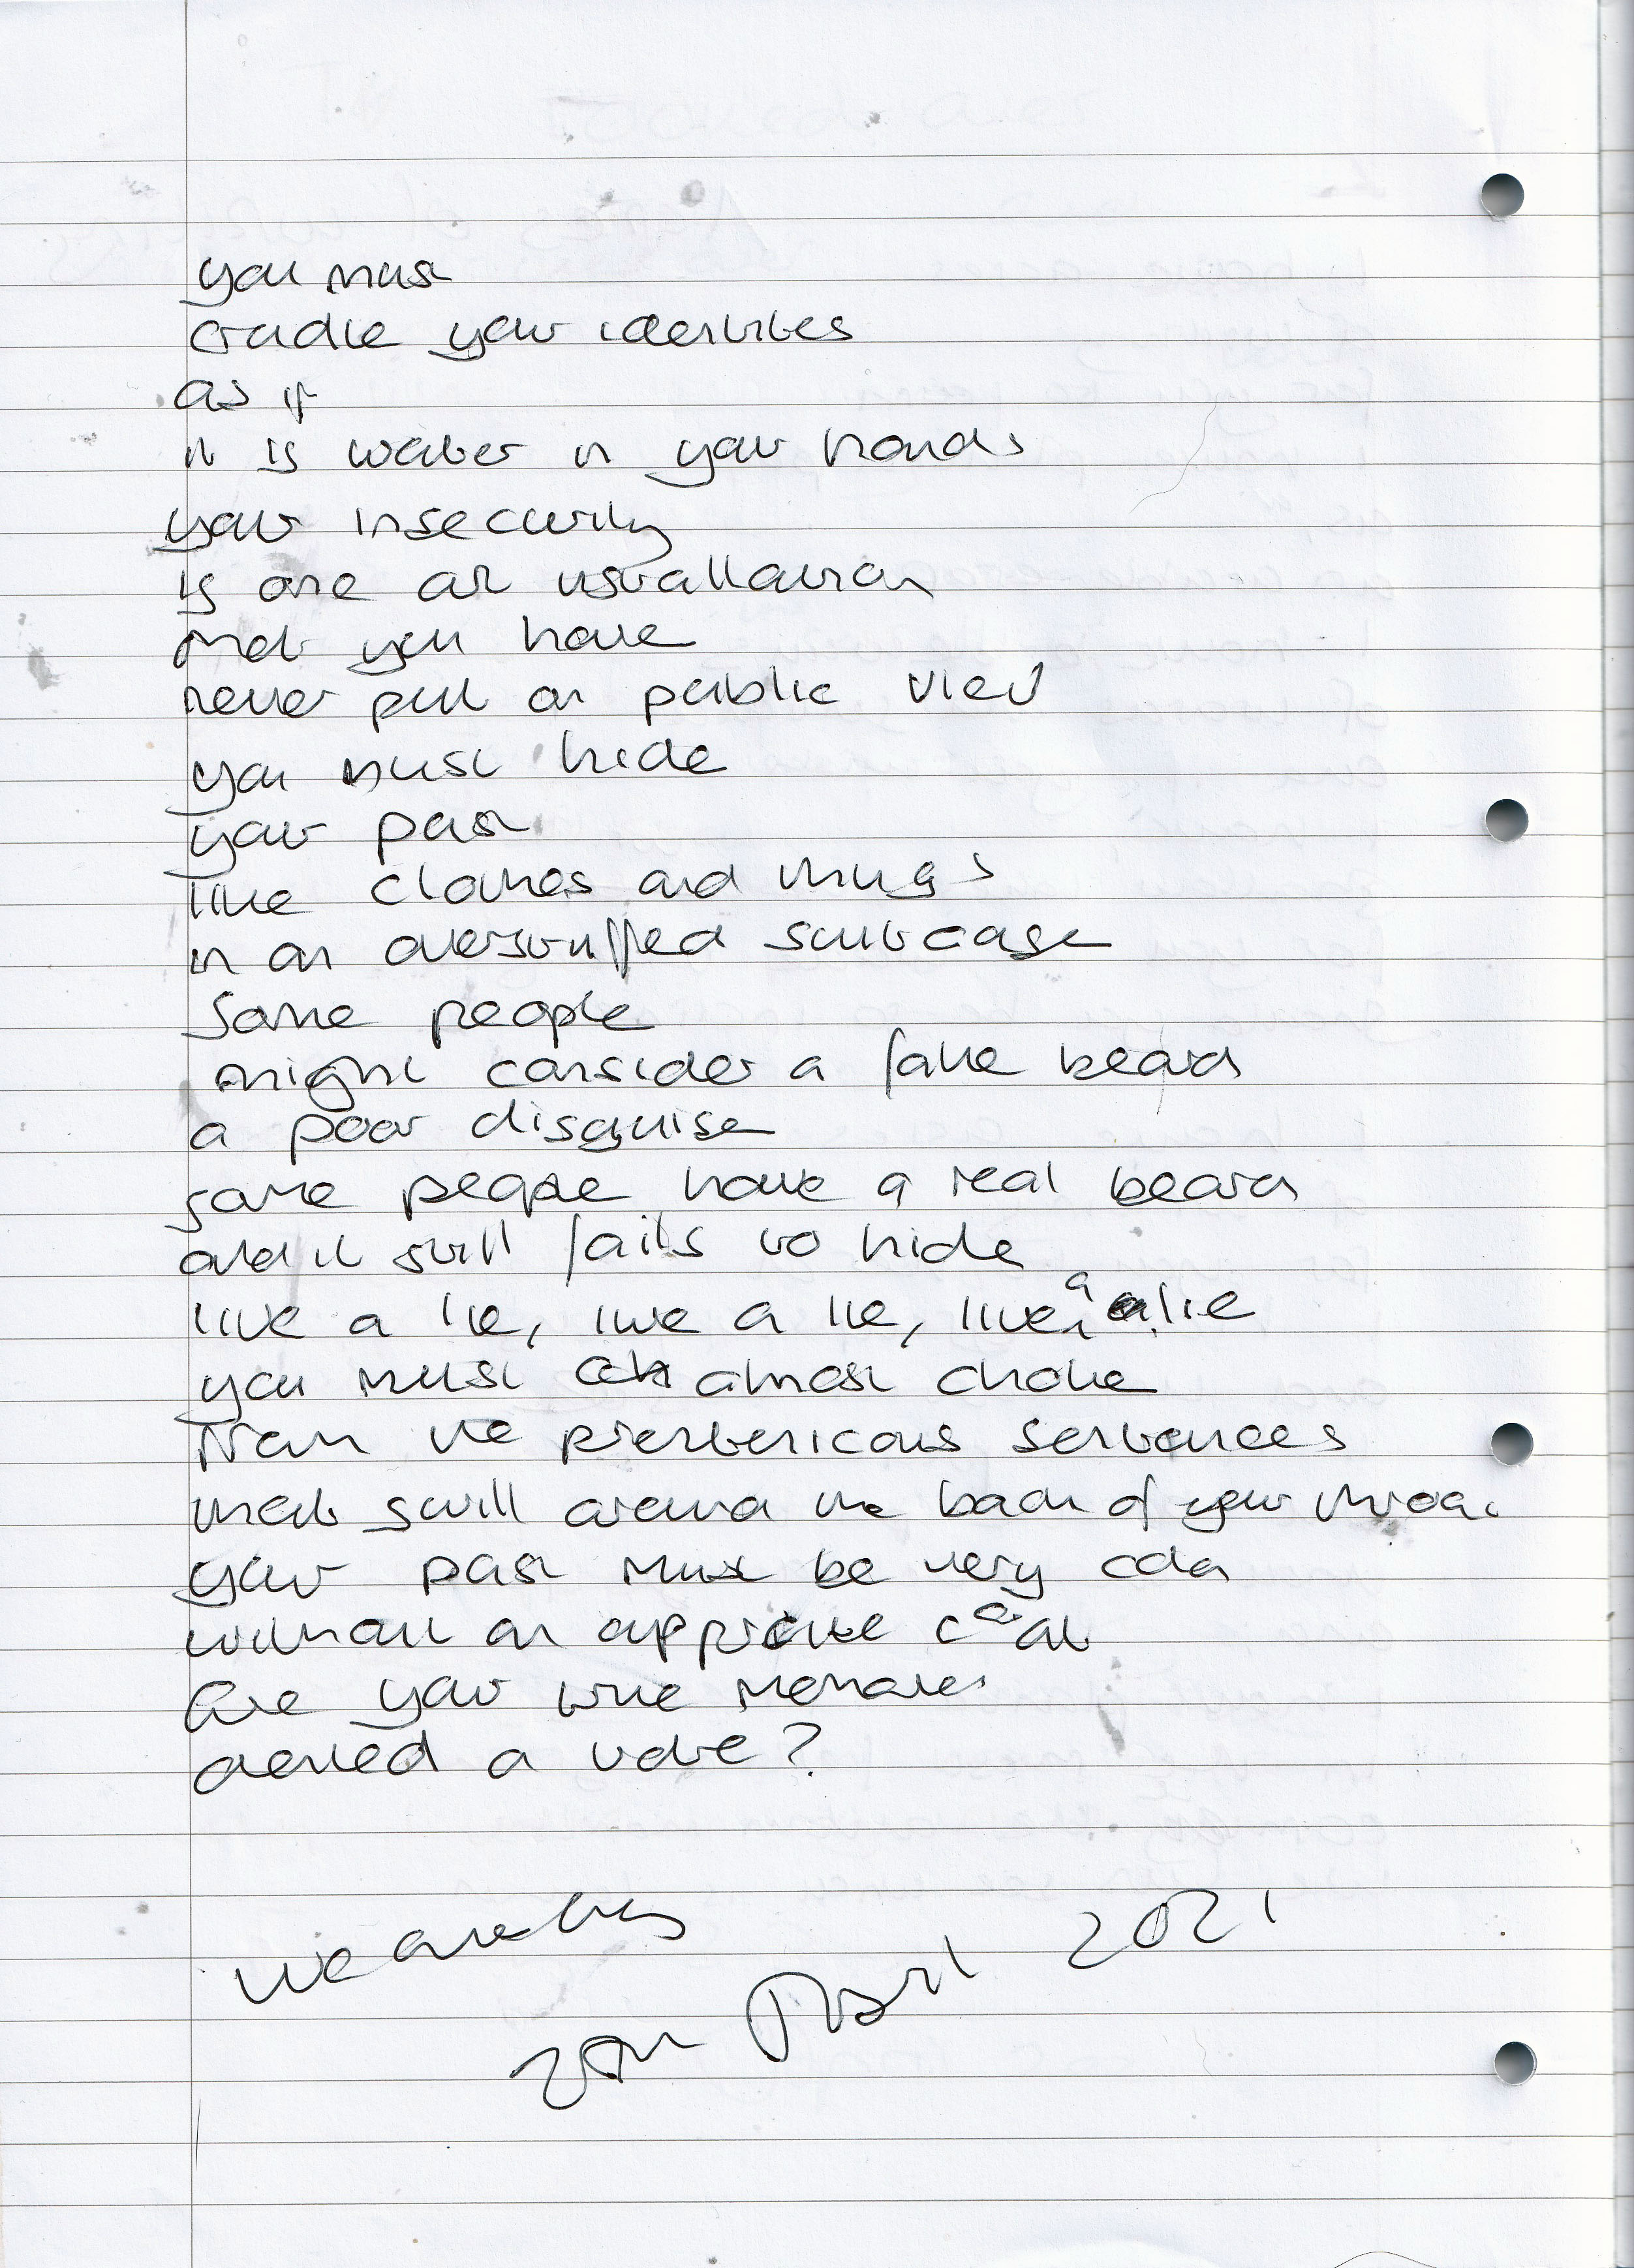 you must
cradle your identities
as if
it is water in your hands
your insecurity
is one art installation
that you have
never put on public view
you must hide
your past
like clothes and things
in an overstuffed suitcase
Some people
might consider a fake beard
a poor disguise
some people have a real beard
and it still fails to hide
live a lie, live a lie, live a lie
you must almost choke
from the pretentious sentences
that swill around the back of your throat
your past must be very cold
without an appropriate coat
Are your true memories
denied a voice?
April 2021